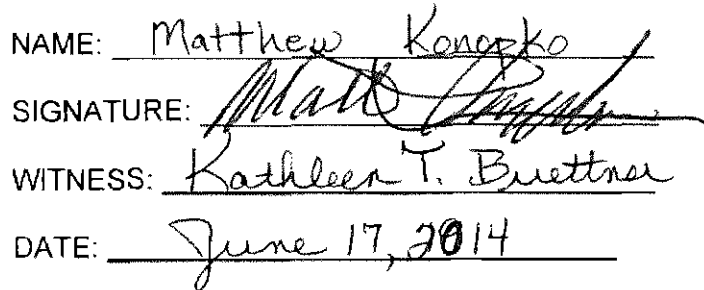 NAME: Matthew Konopko
SIGNATURE: Matt
WITNESS: Kathleen T. Buettner
DATE: June 17, 2014